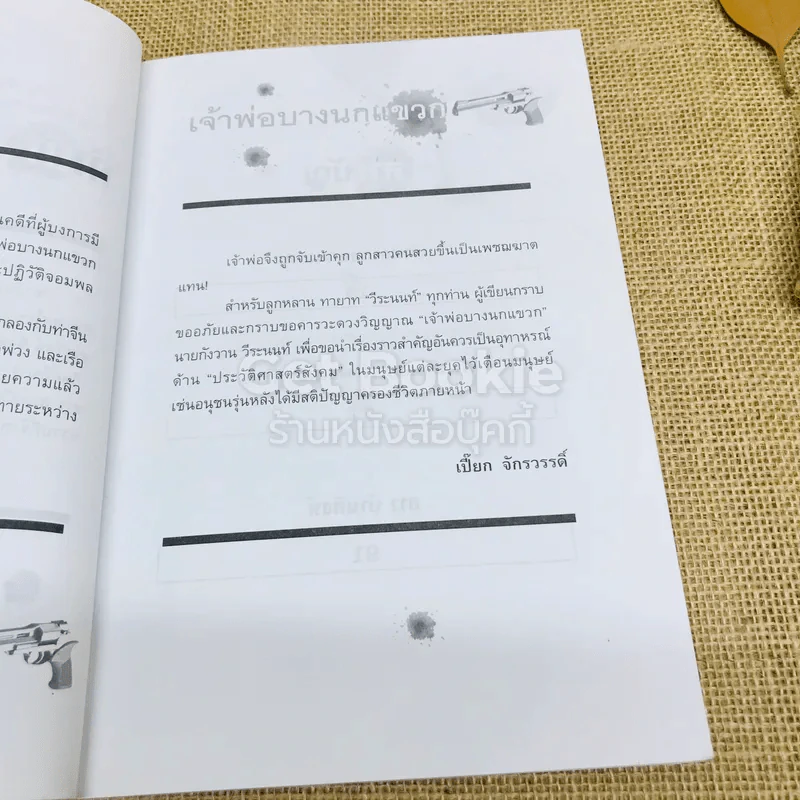 นคดีที่ผู้บงการมี
พ่อบางนกแขวก
ะปฏิวัติจอมพล
กลองกับท่าจีน
งพ่วง และเรือ
ยความแล้ว
ทายระหว่าง
เจ้าพ่อบางนกแขวก
เจ้าพ่อจึงถูกจับเข้าคุก ลูกสาวคนสวยขึ้นเป็นเพชฌฆาต
แทน!
สำหรับลูกหลาน ทายาท "วีระนนท์" ทุกท่าน ผู้เขียนกราบ
ขออภัยและกราบขอคารวะดวงวิญญาณ "เจ้าพ่อบางนกแขวก"
นายกังวาน วีระนนท์ เพื่อขอนำเรื่องราวสำคัญอันควรเป็นอุทาหรณ์
ด้าน "ประวัติศาสตร์สังคม" ในมนุษย์แต่ละยุคไว้เตือนมนุษย์
เช่นอนุชนรุ่นหลังได้มีสติปัญญาครองชีวิตภายหน้า
Get Bookie
ร้านหนังสือบุ๊คกี้
เปี๊ยก จักรวรรดิ์